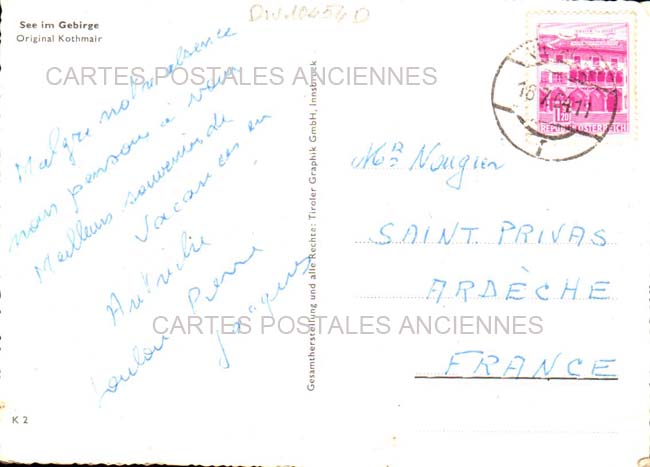 Div.10454 D
See im Gebirge
Original Kothmair
CARTES POSTALES ANCIENNES
Malgre notre absence
nous pensons à vous
Meilleurs souvenirs de
Vacances en
Autriche
Pierre
Jacques
K 2
Gesamtherstellung und alle Rechte: Tiroler Graphik GmbH, Innsbruck
1.20
REPUBLIK ÖSTERREICH
Mr Nougier
SAINT PRIVAS
ARDÈCHE
FRANCE
CARTES POSTALES ANCIENNES